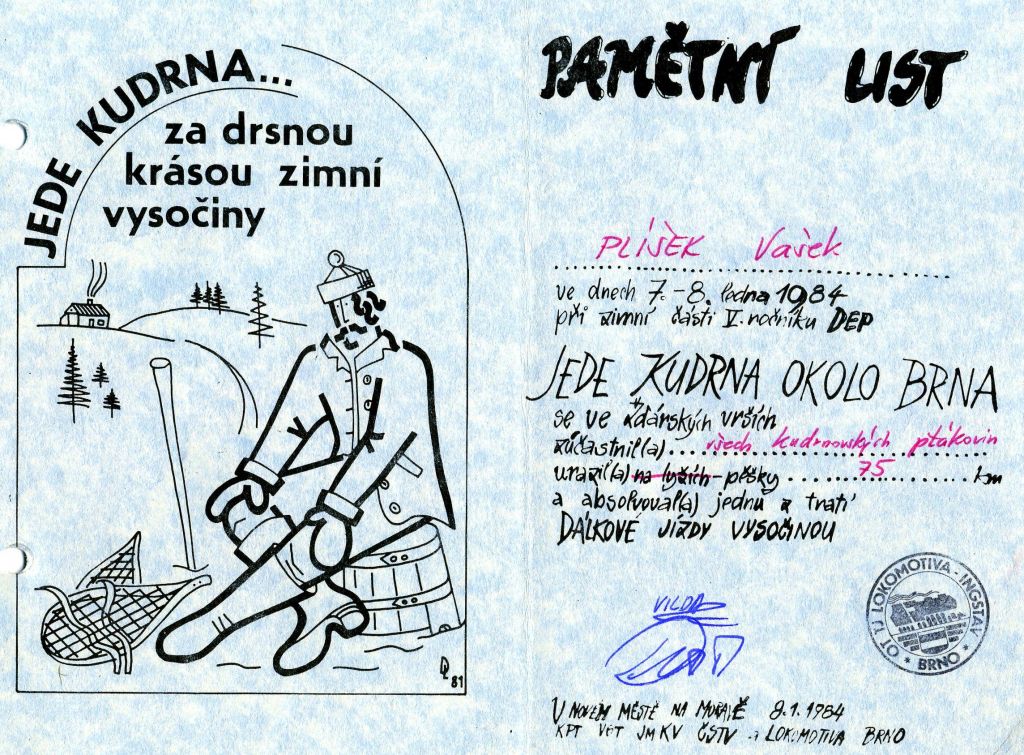 JEDE KUDRNA...
za drsnou
krásou zimní
vysočiny
81
PAMĚTNÍ LIST
PLÍŠEK Vašek
ve dnech 7.-8. ledna 1984
při zimní části V. ročníku DEP
JEDE KUDRNA OKOLO BRNA
se ve Žďárských vrších
zúčastnil(a) všech kudrnovských ptákovin
urazil(a) na lyžích-pěšky 75 km
a absolvoval(a) jednu z tratí
DÁLKOVÉ JÍZDY VYSOČINOU
OT TJ LOKOMOTIVA-INGSTAV
* BRNO *
V NOVÉM MĚSTĚ NA MORAVĚ 8.1.1984
KPT VPT JMKV ČSTV a LOKOMOTIVA BRNO